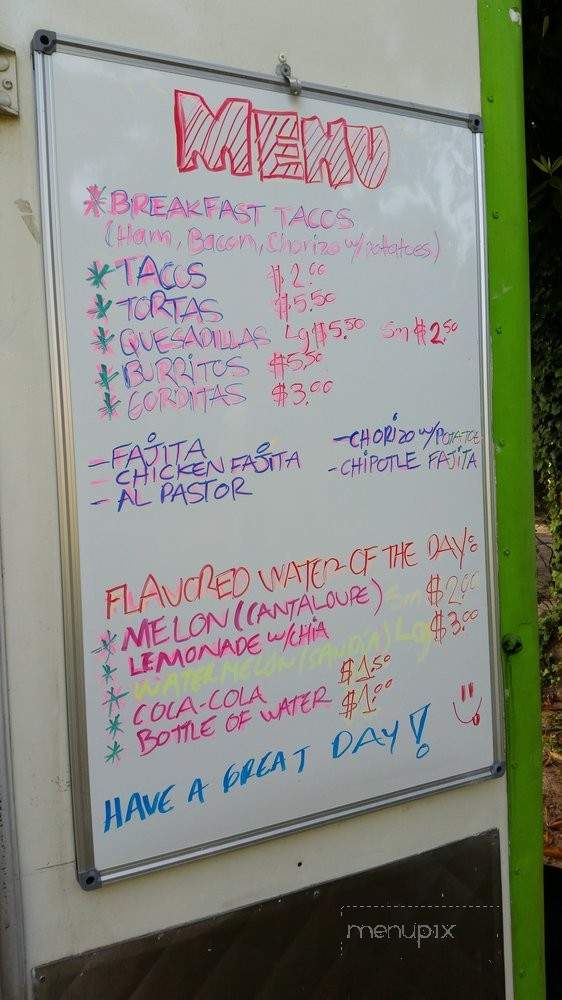 MENU
* BREAKFAST TACOS
(Ham, Bacon, Chorizo w/potatoes)
* TACOS $2.00
* TORTAS $5.50
* QUESADILLAS Lg $5.50 Sm $2.50
* BURRITOS $5.50
* GORDITAS $3.00
- FAJITA
- CHICKEN FAJITA
- AL PASTOR
- CHORIZO w/POTATOE
- CHIPOTLE FAJITA
FLAVORED WATER OF THE DAY:
* MELON (CANTALOUPE) Sm $2.00
* LEMONADE w/CHIA
* WATERMELON (SANDIA) Lg $3.00
* COCA-COLA $1.50
* BOTTLE OF WATER $1.00
HAVE A GREAT DAY!
menupix